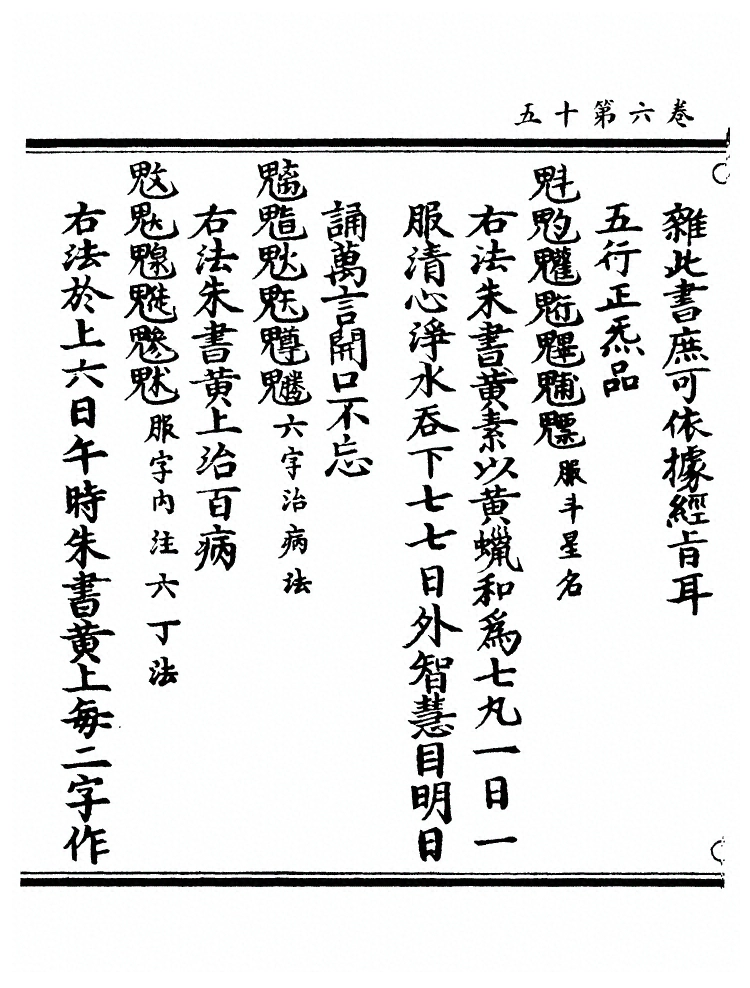 卷六第十五
雜此書庶可依據經旨耳
五行正炁品
魁魒服斗星名
右法朱書黃素以黃蠟和為七丸一日一
服清心淨水吞下七七日外智慧目明日
誦萬言開口不忘
六字治病法
右法朱書黃上治百病
服字內注六丁法
右法於上六日午時朱書黃上每二字作